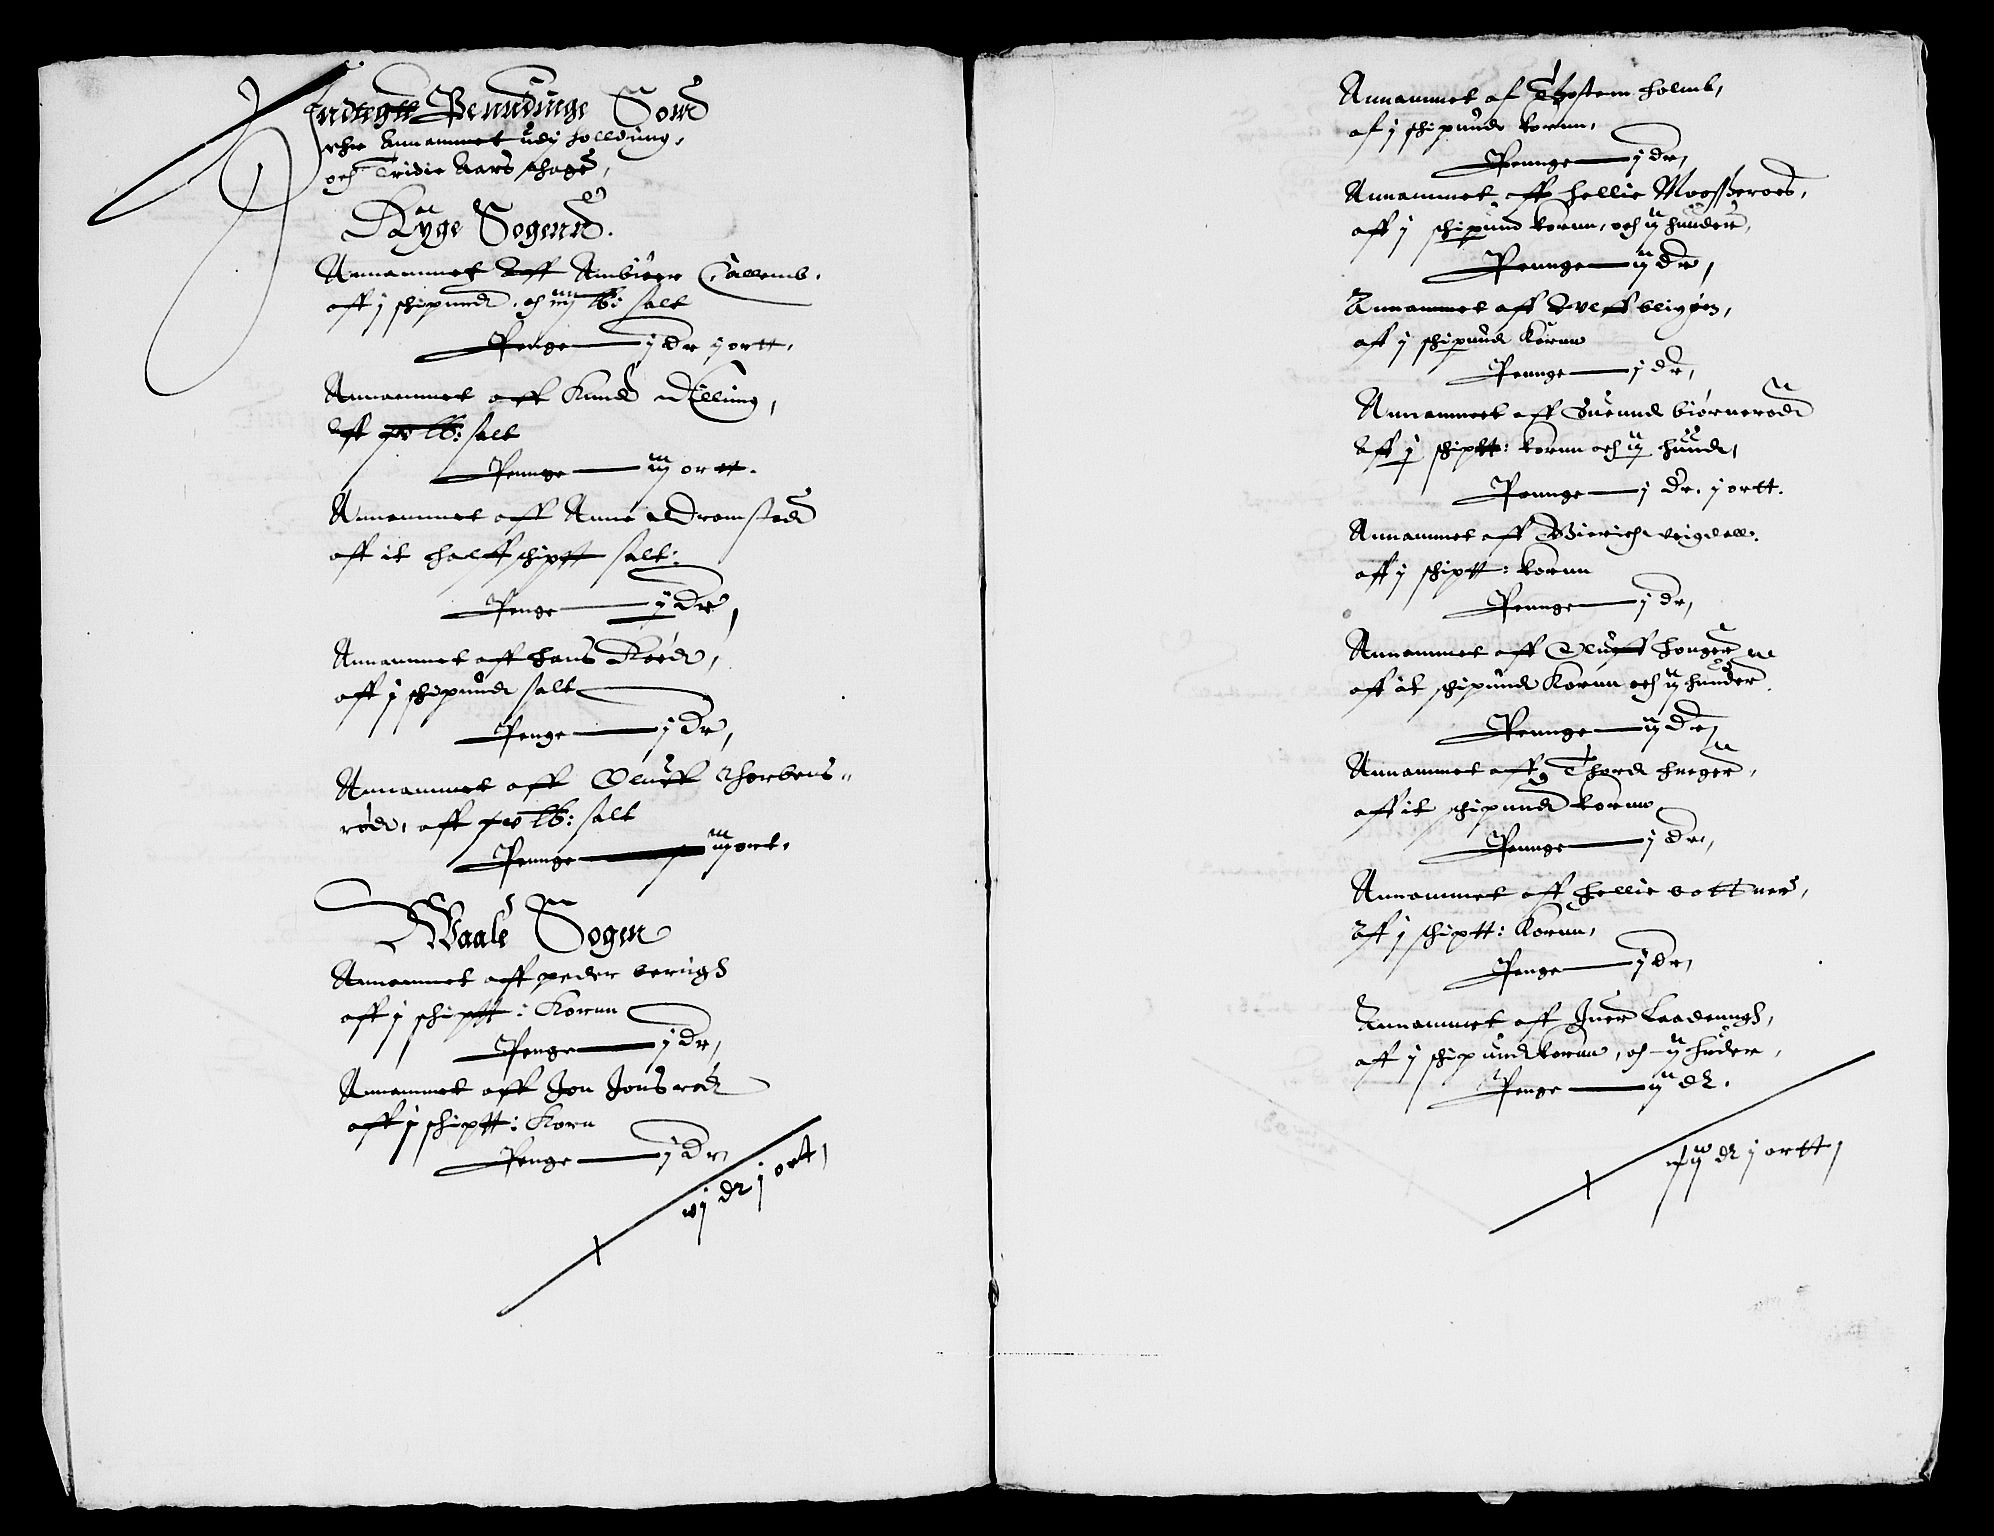 Indtegtt Penndinge Som
ehre Annammet udj holldning,
och Tridie Aars schage,
Ryge Sogenn.
Annammet Aff Ambiørn Callemb.
aff j schipund. och iiij lb: salt
Penge j dr j ortt.
Annammet aff Knud Dilling,
Aff xv lb: salt
Pennge iij ortt.
Annammet aff Anne Dramstad
aff it halff schiptt salt:
Penge j dr,
Annammet aff hans Rød,
aff j schipund salt
Penge j dr,
Annammet aff Oluff Thorbens-
rød, aff xv lb: salt
Pennge iij ort.
Waale Sogen
Annammet aff peder berugh
aff j schiptt: Kornn
Penge j dr,
Annammet aff Jon Jonsrød
aff j schiptt: Korn
Penge j dr,
vj dr j ort,
Annammet af Thostenn holmb,
af j schipund kornn,
Pennge j dr,
Annammet aff hellie Moesseroed,
aff j schipund kornn, och ij hunder,
Pennge ij dr,
Annammet aff
aff j schipund Kornn
Pennge j dr,
Annammet aff Suennd biørnerød
Aff j schiptt: kornn och ij hund,
Pennge j dr. j ortt.
Annammet aff
aff j schiptt: kornn
Pennge j dr,
Annammet aff Oluff honger
aff it schipund Kornn och ij hunder
Pennge ij dr,
Annammet aff Thord
aff it schipund kornn
Pennge j dr,
Annammet aff hellie bottner,
Aff j schiptt: Kornn,
Penge j dr,
Annammet aff Juer Laadenngh,
aff j schipund kornn, och ij huder,
Penge ij dr.
xij dr j ortt,